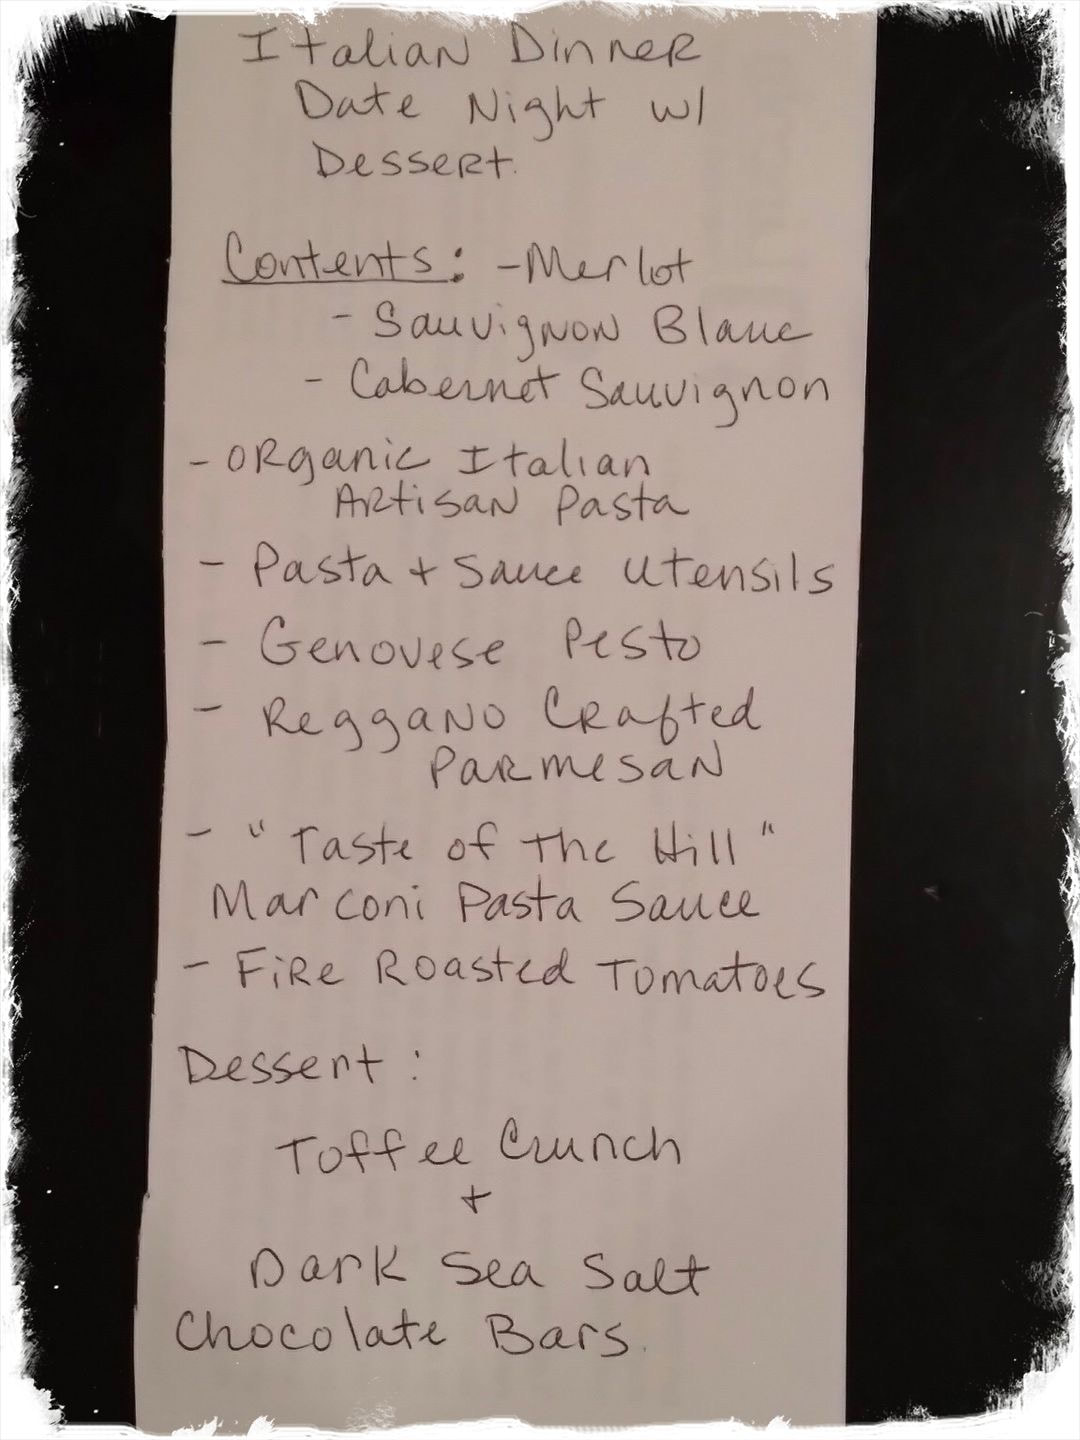 Italian Dinner
Date Night w/
Dessert.
Contents: -Merlot
- Sauvignon Blanc
- Cabernet Sauvignon
- Organic Italian
Artisan Pasta
- Pasta + Sauce Utensils
- Genovese Pesto
- Reggano Crafted
Parmesan
- "Taste of the Hill"
Marconi Pasta Sauce
- Fire Roasted Tomatoes
Dessert:
Toffee Crunch
+
Dark Sea Salt
Chocolate Bars.